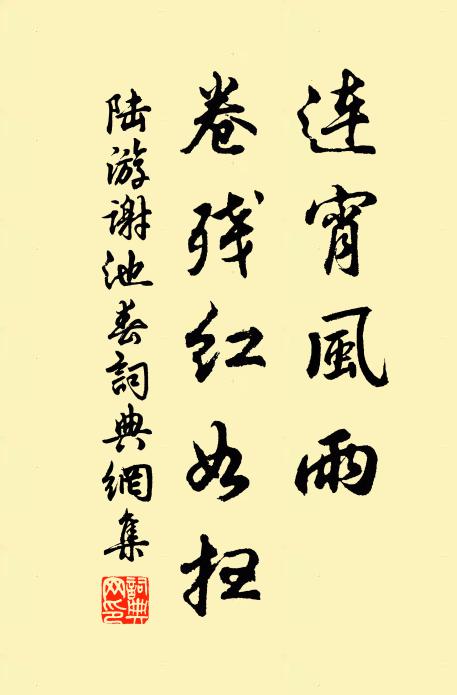 連宵風雨
卷殘紅如掃
陸游謝池春詞典網集
詞典
网印